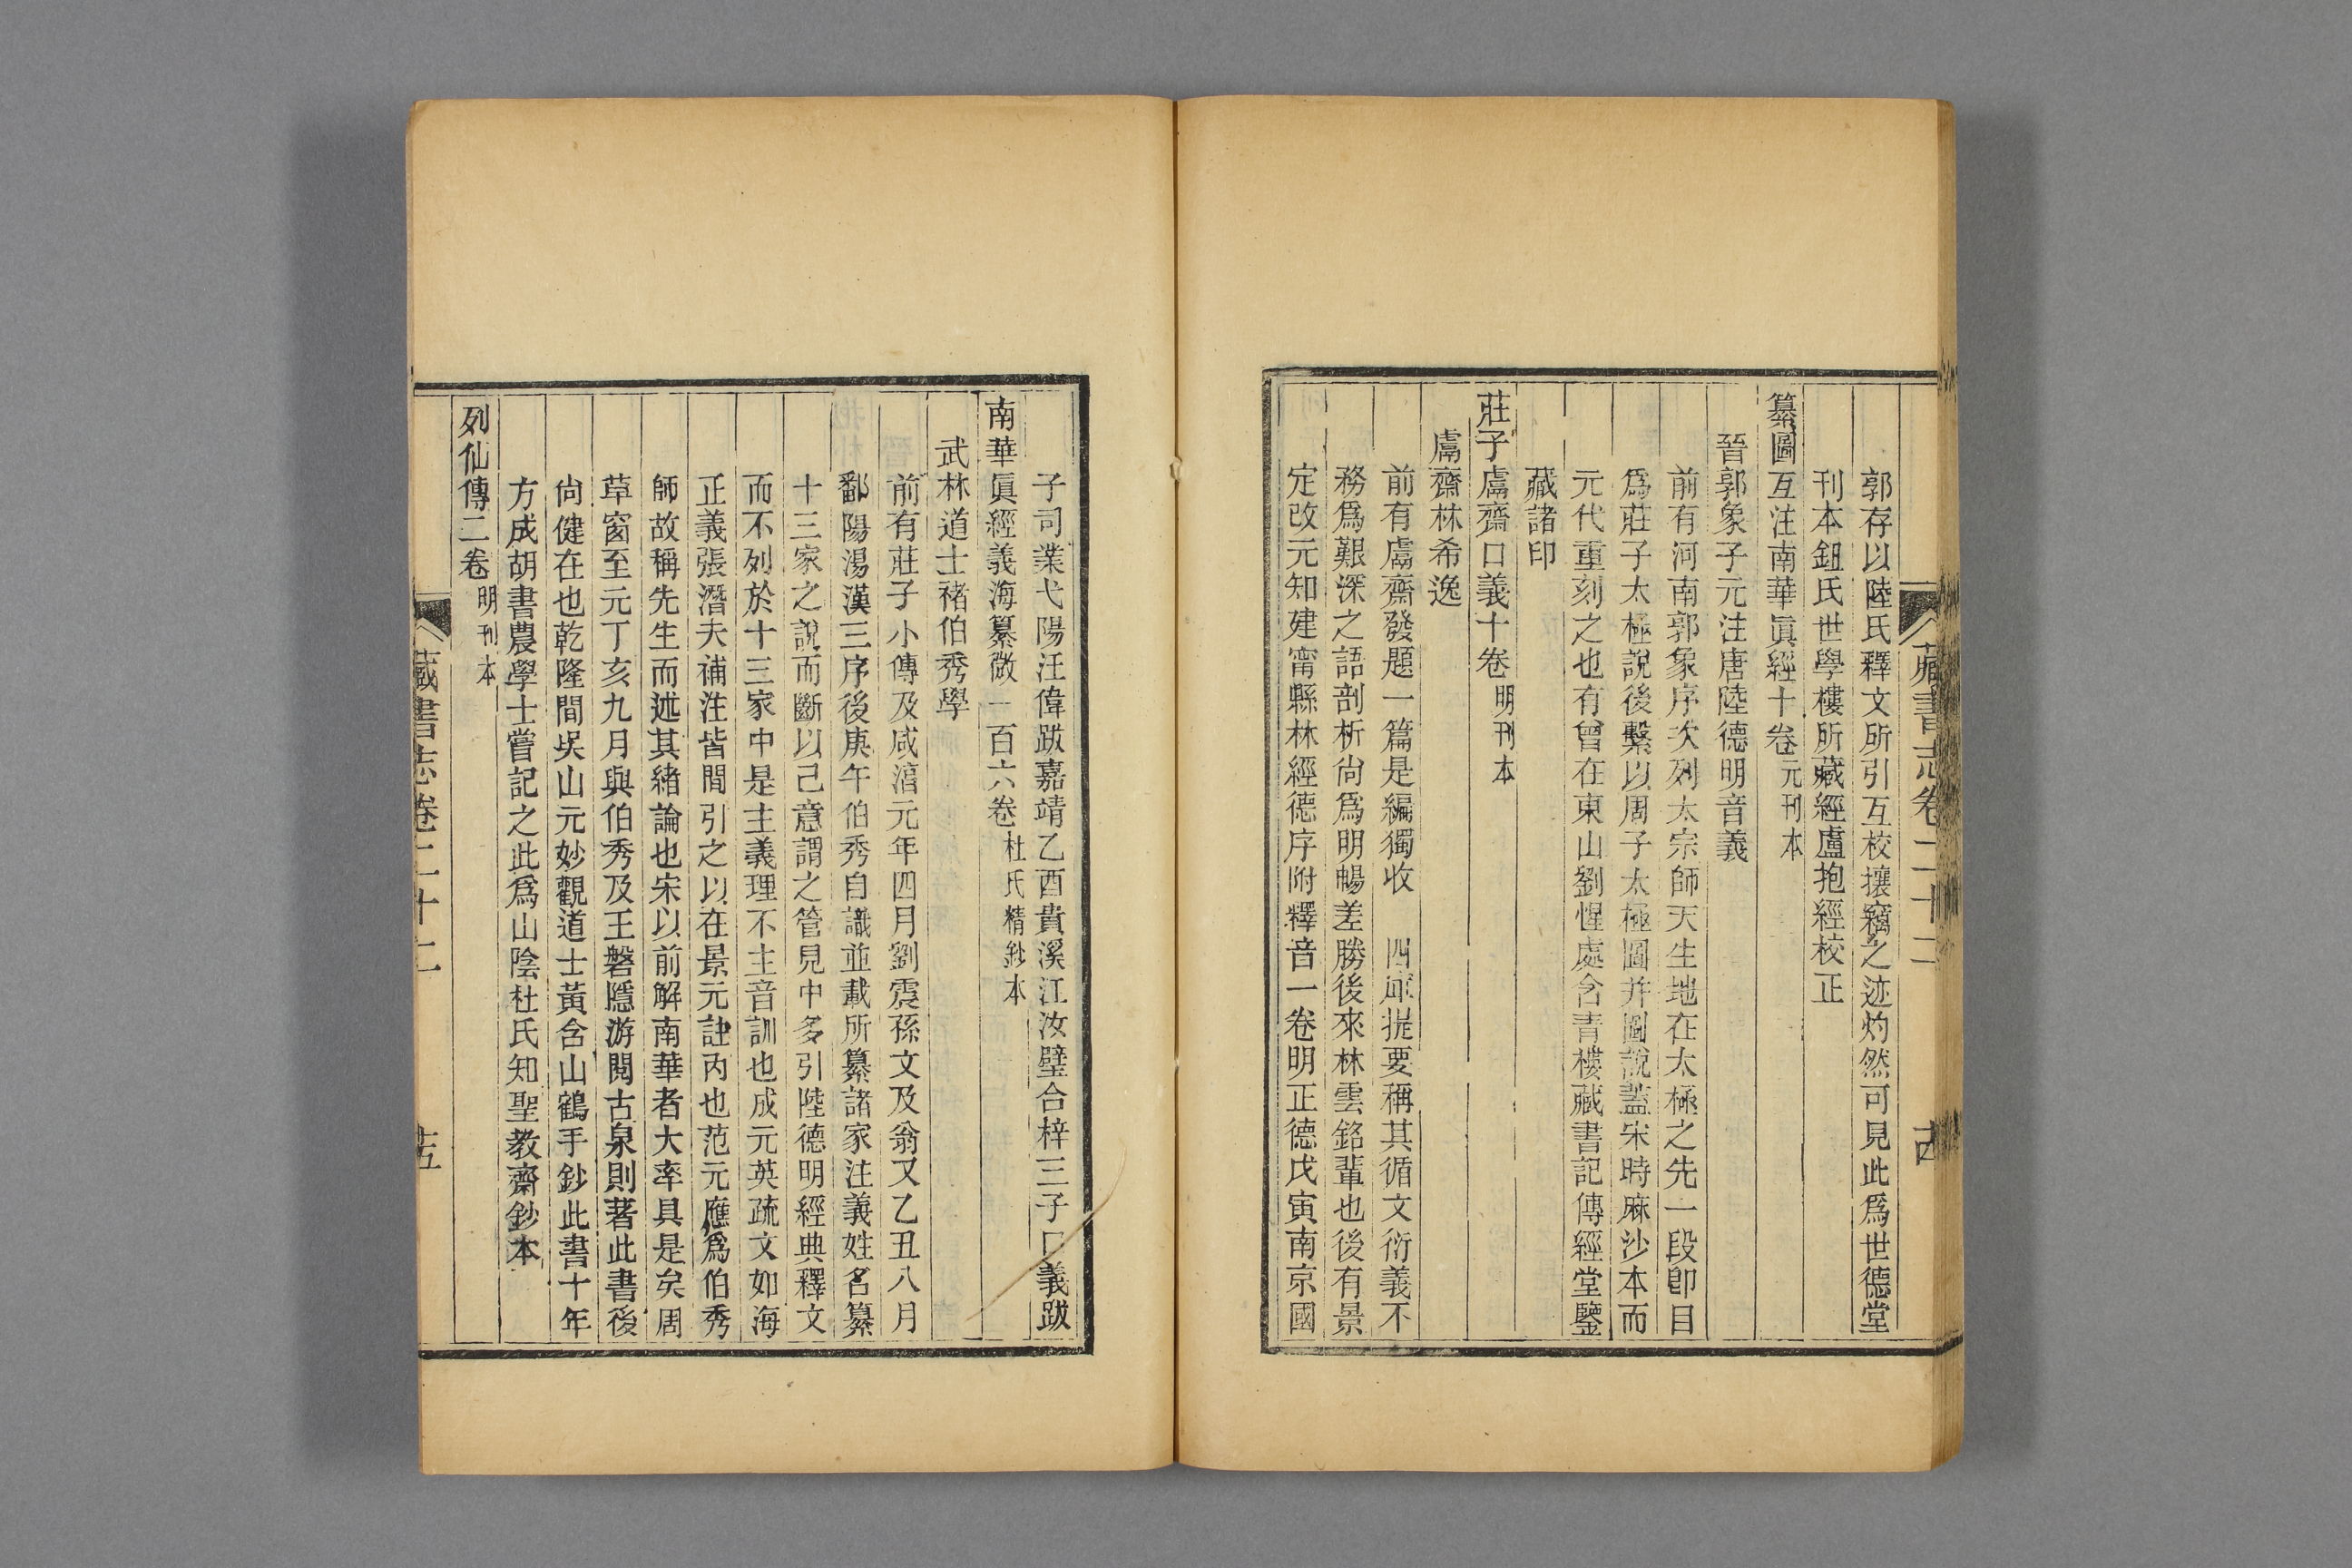 藏書志卷二十二
十四
郭存以陸氏釋文所引互校攘竊之迹灼然可見此爲世德堂
刊本鈕氏世學樓所藏經盧抱經校正
纂圖互注南華眞經十卷元刊本
晉郭象子元注唐陸德明音義
前有河南郭象序次列太宗師天生地在太極之先一段卽目
爲莊子太極說後繫以周子太極圖并圖說蓋宋時麻沙本而
元代重刻之也有曾在東山劉惺處含青樓藏書記傳經堂鑒
藏諸印
莊子鬳齋口義十卷明刊本
鬳齋林希逸
前有鬳齋發題一篇是編獨收　四庫提要稱其循文衍義不
務爲艱深之語剖析尙爲明暢差勝後來林雲銘輩也後有景
定改元知建甯縣林經德序附釋音一卷明正德戊寅南京國
子司業弋陽汪偉跋嘉靖乙酉貴溪江汝璧合梓三子口義跋
南華眞經義海纂微一百六卷杜氏精鈔本
武林道士褚伯秀學
前有莊子小傳及咸淳元年四月劉震孫文及翁又乙丑八月
鄱陽湯漢三序後庚午伯秀自識並載所纂諸家注義姓名纂
十三家之說而斷以己意謂之管見中多引陸德明經典釋文
而不列於十三家中是主義理不主音訓也成元英疏文如海
正義張潛夫補注皆間引之以在景元註丙也范元應爲伯秀
師故稱先生而述其緒論也宋以前解南華者大率具是矣周
草窗至元丁亥九月與伯秀及王磐隱游閱古泉則著此書後
尙健在也乾隆間吳山元妙觀道士黃含山鶴手鈔此書十年
方成胡書農學士嘗記之此爲山陰杜氏知聖教齋鈔本
列仙傳二卷明刊本
藏書志卷二十二
十五